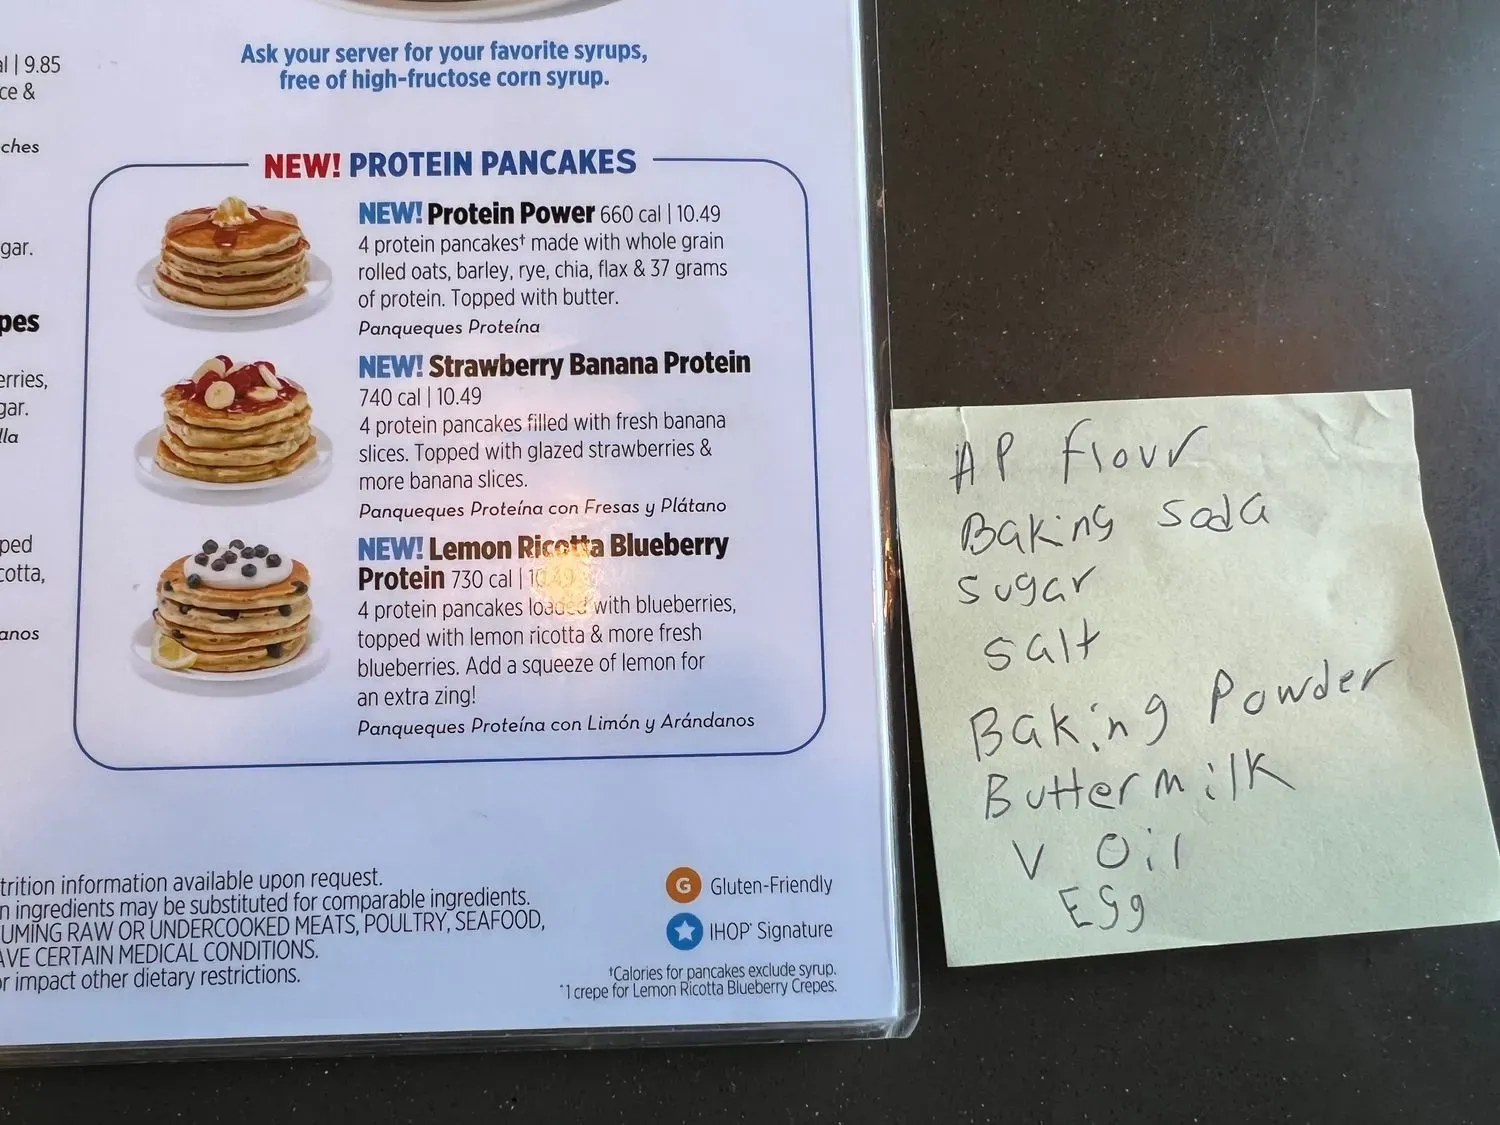 al | 9.85
ce &
ches
gar.
pes
erries,
gar.
lla
ped
cotta,
anos
Ask your server for your favorite syrups,
free of high-fructose corn syrup.
NEW! PROTEIN PANCAKES
NEW! Protein Power 660 cal | 10.49
4 protein pancakes† made with whole grain
rolled oats, barley, rye, chia, flax & 37 grams
of protein. Topped with butter.
Panqueques Proteína
NEW! Strawberry Banana Protein
740 cal | 10.49
4 protein pancakes filled with fresh banana
slices. Topped with glazed strawberries &
more banana slices.
Panqueques Proteína con Fresas y Plátano
NEW! Lemon Ricotta Blueberry
Protein 730 cal | 10.49
4 protein pancakes loaded with blueberries,
topped with lemon ricotta & more fresh
blueberries. Add a squeeze of lemon for
an extra zing!
Panqueques Proteína con Limón y Arándanos
trition information available upon request.
n ingredients may be substituted for comparable ingredients.
UMING RAW OR UNDERCOOKED MEATS, POULTRY, SEAFOOD,
AVE CERTAIN MEDICAL CONDITIONS.
or impact other dietary restrictions.
G Gluten-Friendly
IHOP® Signature
†Calories for pancakes exclude syrup.
*1 crepe for Lemon Ricotta Blueberry Crepes.
AP flour
Baking soda
sugar
salt
Baking Powder
Buttermilk
V Oil
Egg